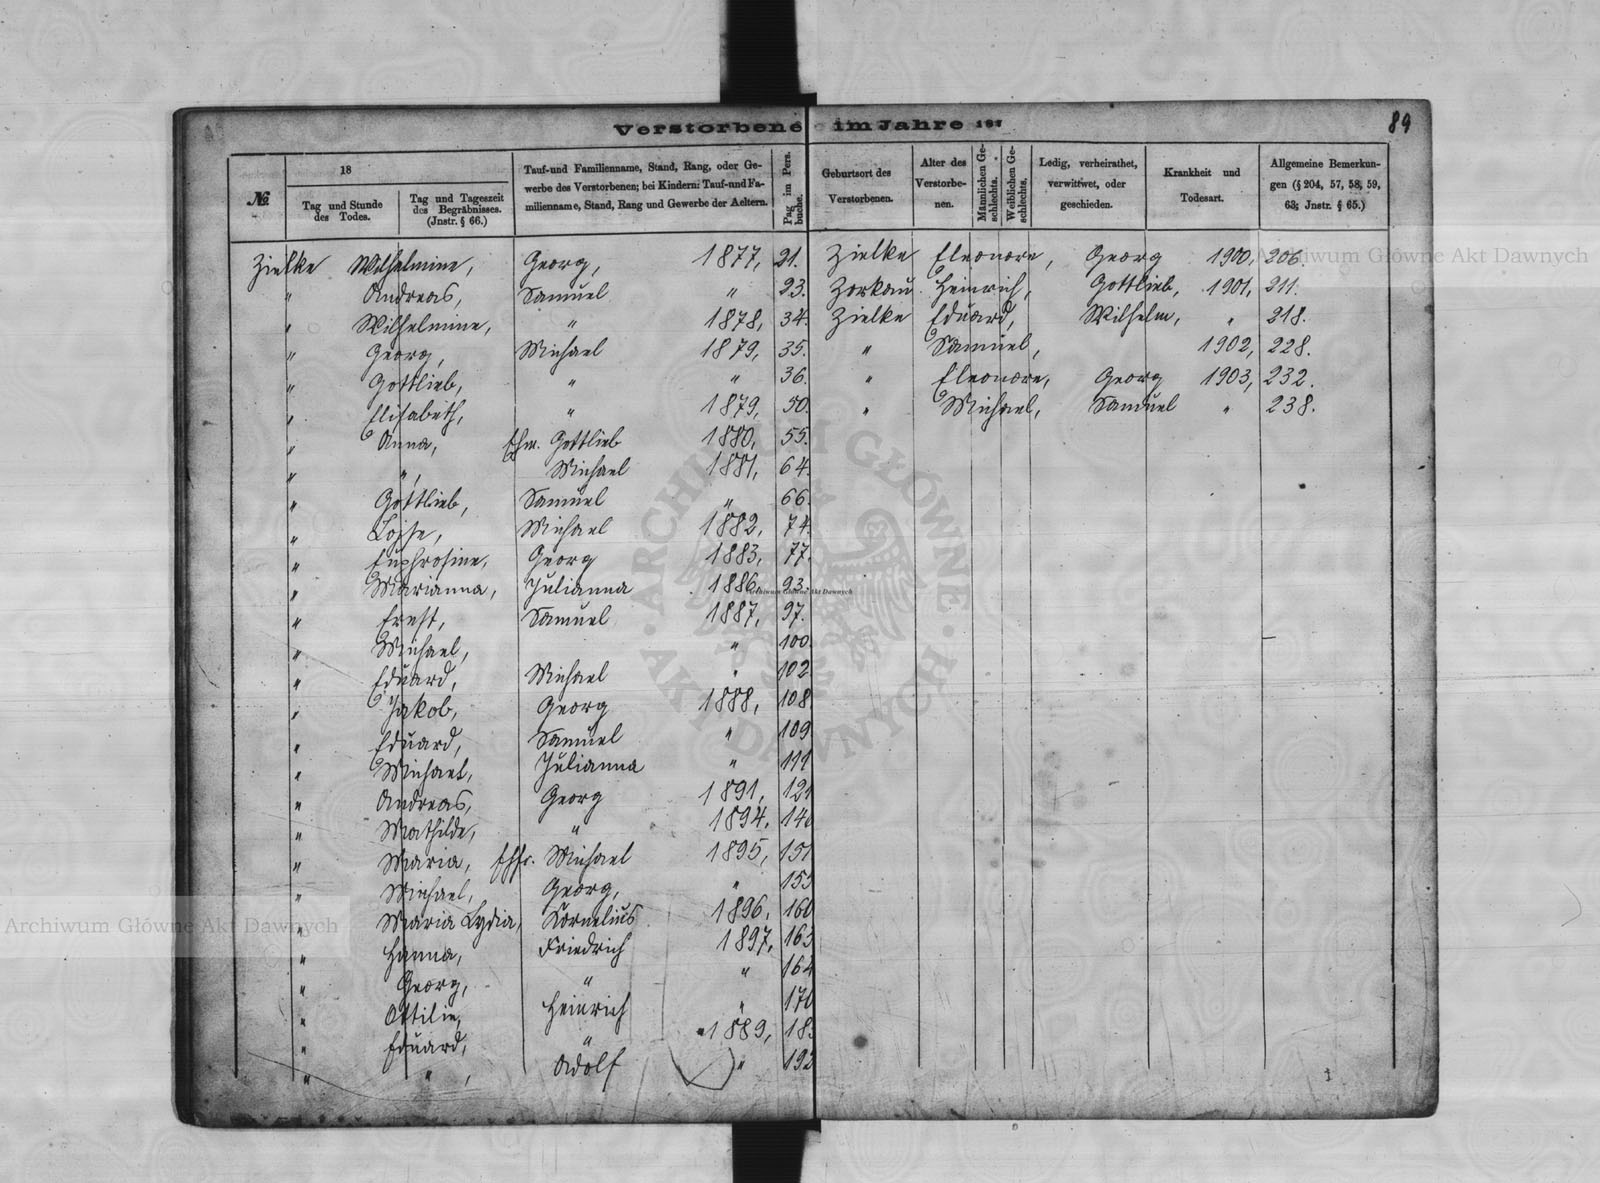 89
Verstorbene im Jahre 187
№
18
Tag und Stunde des Todes.
Tag und Tageszeit des Begräbnisses. (Jnstr. § 66.)
Tauf-und Familienname, Stand, Rang, oder Ge-
werbe des Verstorbenen; bei Kindern: Tauf-und Fa-
milienname, Stand, Rang und Gewerbe der Aeltern.
Pag. im Pers. buche.
Geburtsort des Verstorbenen.
Alter des Verstorbe-nen.
Männlichen Ge-schlechts.
Weiblichen Ge-schlechts.
Ledig, verheirathet, verwittwet, oder geschieden.
Krankheit und Todesart.
Allgemeine Bemerkun-gen (§ 204, 57, 58, 59, 63; Jnstr. § 65.)
Zielke Wilhelmine, Georg, 1877, 21.
" Andreas, Samuel " 23.
" Wilhelmine, " 1878, 34.
" Georg, Michael 1879, 35.
" Gottlieb, " " 36.
" Elisabeth, " 1879, 50.
" Anna, Ehm. Gottlieb 1880, 55.
" ", Michael 1881, 64.
" Gottlieb, Samuel " 66.
" Lojse, Michael 1882, 74.
" Euphrosine, Georg 1883, 77.
" Marianna, Julianna 1886, 93.
" Ernst, Samuel 1887, 97.
" Michael, " 100.
" Eduard, Michael " 102.
" Jakob, Georg 1888, 108.
" Eduard, Samuel " 109
" Michael, Julianna " 111
" Andreas, Georg 1891, 121
" Mathilde, " 1894, 140
" Maria, Ehfr. Michael 1895, 151
" Michael, Georg, " 153
" Maria Lydia, Kornelius 1896, 160
" Hanna, Friedrich 1897, 163
" Georg, " " 164
" Ottilie, Heinrich " 170
" Eduard, " 1889, 183
" ", Adolf " 192
Zielke Eleonore, Georg 1900, 206.
Zorkau Heinrich, Gottlieb, 1901, 211.
Zielke Eduard, Wilhelm, " 218.
" Samuel, 1902, 228.
" Eleonore, Georg 1903, 232.
" Michael, Samuel " 238.
Archiwum Główne Akt Dawnych
Archiwum Główne Akt Dawnych
Archiwum Główne Akt Dawnych
ARCHIWUM GŁÓWNE AKT DAWNYCH